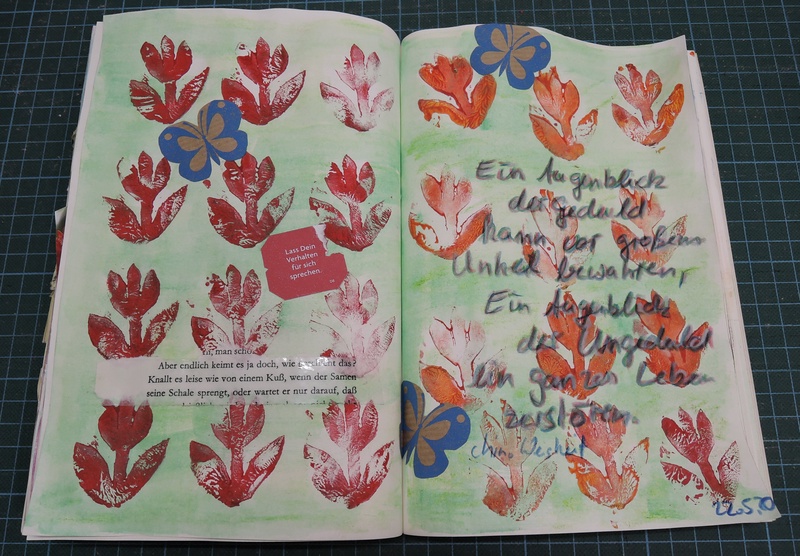 Lass Dein
Verhalten
für sich
sprechen.
man schö
Aber endlich keimt es ja doch, wie das?
Knallt es leise wie von einem Kuß, wenn der Samen
seine Schale sprengt, oder wartet er nur darauf, daß
Ein Augenblick
der Geduld
kann vor großem
Unheil bewahren,
Ein Augenblick
der Ungeduld
ein ganzes Leben
zerstören.
22.5.